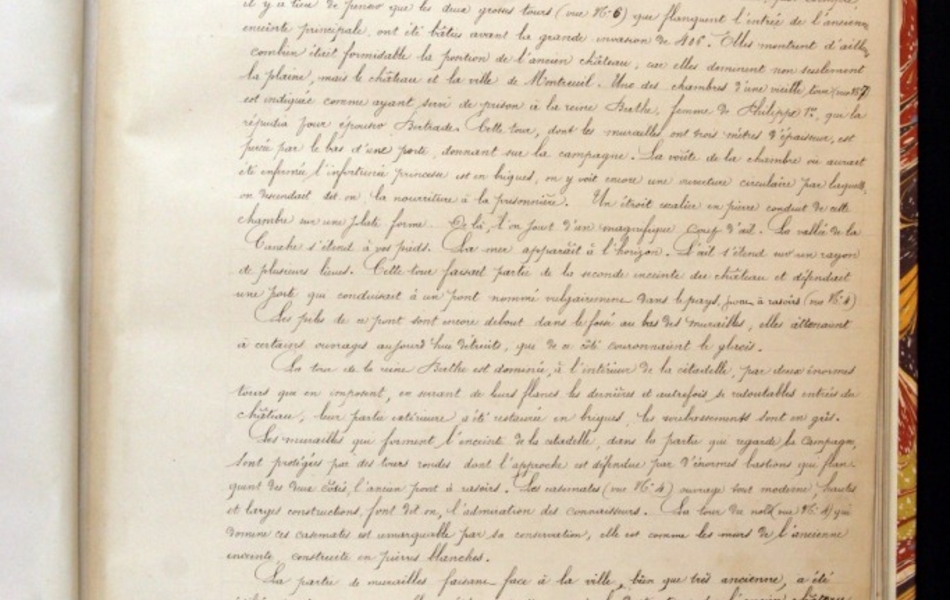 il y a lieu de penser que les deux grosses tours (vue N° 6) que flanquent l'entrée de l'ancienne
enceinte principale, ont été bâties avant la grande invasion de 406. Elles montrent d'aill
combien était formidable la position de l'ancien château, car elles dominent non seulement
la plaine, mais le château et la ville de Montreuil. Une des chambres d'une vieille tour (vue N° 7)
est indiquée comme ayant servi de prison à la reine Berthe, femme de Philippe 1er, qui la
répudia pour épouser Bertrade. Cette tour, dont les murailles ont trois mètres d'épaisseur, est
percée par le bas d'une porte, donnant sur la campagne. La voûte de la chambre où aurait
été enfermée l'infortunée princesse est en briques, on y voit encore une ouverture circulaire par laquelle
on descendait dit on, la nourriture à la prisonnière. Un étroit escalier en pierre conduit de cette
chambre sur une plate forme. De là, l'on jouit d'un magnifique coup d'œil. La vallée de la
Canche s'étend à vos pieds. La mer apparaît à l'horizon. L'œil s'étend sur un rayon
de plusieurs lieues. Cette tour faisait partie de la seconde enceinte du château et défendait
une porte qui conduisait à un pont nommé vulgairement dans le pays, pont à rasoirs (vue N° 4)
Les piles de ce pont sont encore debout dans le fossé au bas des murailles, elles attenaient
à certains ouvrages aujourd'hui détruits, que de ce côté couronnaient le glacis.
La tour de la reine Berthe est dominée, à l'intérieur de la citadelle, par deux énormes
tours que en imposent, en serrant de leurs flancs les dernières et autrefois si redoutables entrées du
château, leur partie extérieure a été restaurée en briques, les embasements sont en grès.
Les murailles que forment l'enceinte de la citadelle, dans la partie qui regarde la campagne,
sont protégées par des tours rondes dont l'approche est défendue par d'énormes bastions qui flan-
quent des deux côtés, l'ancien pont à rasoirs. Les casemates (vue N° 4) ouvrage tout moderne, hautes
et larges constructions, font dit on, l'admiration des connaisseurs. La tour du nord (vue N° 4) qui
domine ces casemates est remarquable par sa conservation, elle est comme les murs de l'ancienne
enceinte, construite en pierres blanches.
La partie de murailles faisant face à la ville, bien que très ancienne, a été